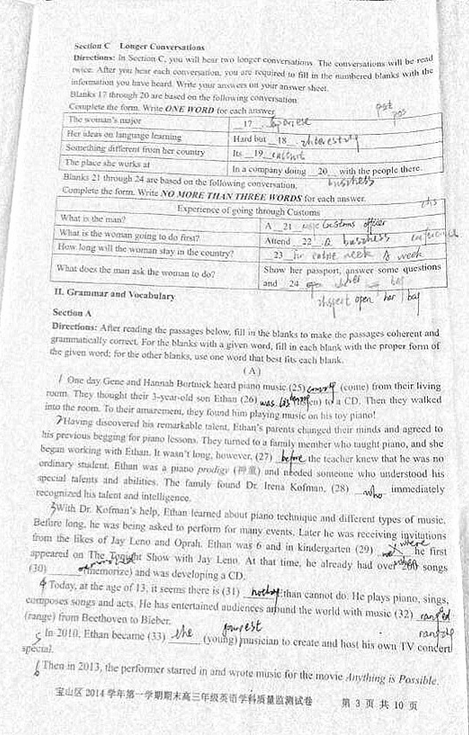 Section C Longer Conversations
Directions: In Section C, you will hear two longer conversations. The conversations will be read
twice. After you hear each conversation, you are required to fill in the numbered blanks with the
information you have heard. Write your answers on your answer sheet.
Blanks 17 through 20 are based on the following conversation.
Complete the form. Write ONE WORD for each answer.
The woman's major 17
Her ideas on language learning Hard but 18 interesting
Something different from her country Its 19
The place she works at In a company doing 20 with the people there.
Blanks 21 through 24 are based on the following conversation. business
Complete the form. Write NO MORE THAN THREE WORDS for each answer.
Experience of going through Customs
What is the man? A 21 customs officer
What is the woman going to do first? Attend 22 a business
How long will the woman stay in the country? 23 week
What does the man ask the woman to do? Show her passport, answer some questions
and 24 open
inspect open her bag
II. Grammar and Vocabulary
Section A
Directions: After reading the passages below, fill in the blanks to make the passages coherent and
grammatically correct. For the blanks with a given word, fill in each blank with the proper form of
the given word; for the other blanks, use one word that best fits each blank.
(A)
1 One day Gene and Hannah Bortnick heard piano music (25) coming (come) from their living
room. They thought their 3-year-old son Ethan (26) was (listen) to a CD. Then they walked
into the room. To their amazement, they found him playing music on his toy piano!
2 Having discovered his remarkable talent, Ethan's parents changed their minds and agreed to
his previous begging for piano lessons. They turned to a family member who taught piano, and she
began working with Ethan. It wasn't long, however, (27) before the teacher knew that he was no
ordinary student. Ethan was a piano prodigy (神童) and needed someone who understood his
special talents and abilities. The family found Dr. Irena Kofman, (28) who immediately
recognized his talent and intelligence.
3 With Dr. Kofman's help, Ethan learned about piano technique and different types of music.
Before long, he was being asked to perform for many events. Later he was receiving invitations
from the likes of Jay Leno and Oprah. Ethan was 6 and in kindergarten (29) when he first
appeared on The Tonight Show with Jay Leno. At that time, he already had over 200 songs
(30) (memorize) and was developing a CD.
4 Today, at the age of 13, it seems there is (31) nothing Ethan cannot do. He plays piano, sings,
composes songs and acts. He has entertained audiences around the world with music (32) ranged
(range) from Beethoven to Bieber.
5 In 2010, Ethan became (33) the youngest (young) musician to create and host his own TV concert
special.
6 Then in 2013, the performer starred in and wrote music for the movie Anything is Possible.
宝山区 2014 学年第一学期期末高三年级英语学科质量监测试卷 第 3 页 共 10 页